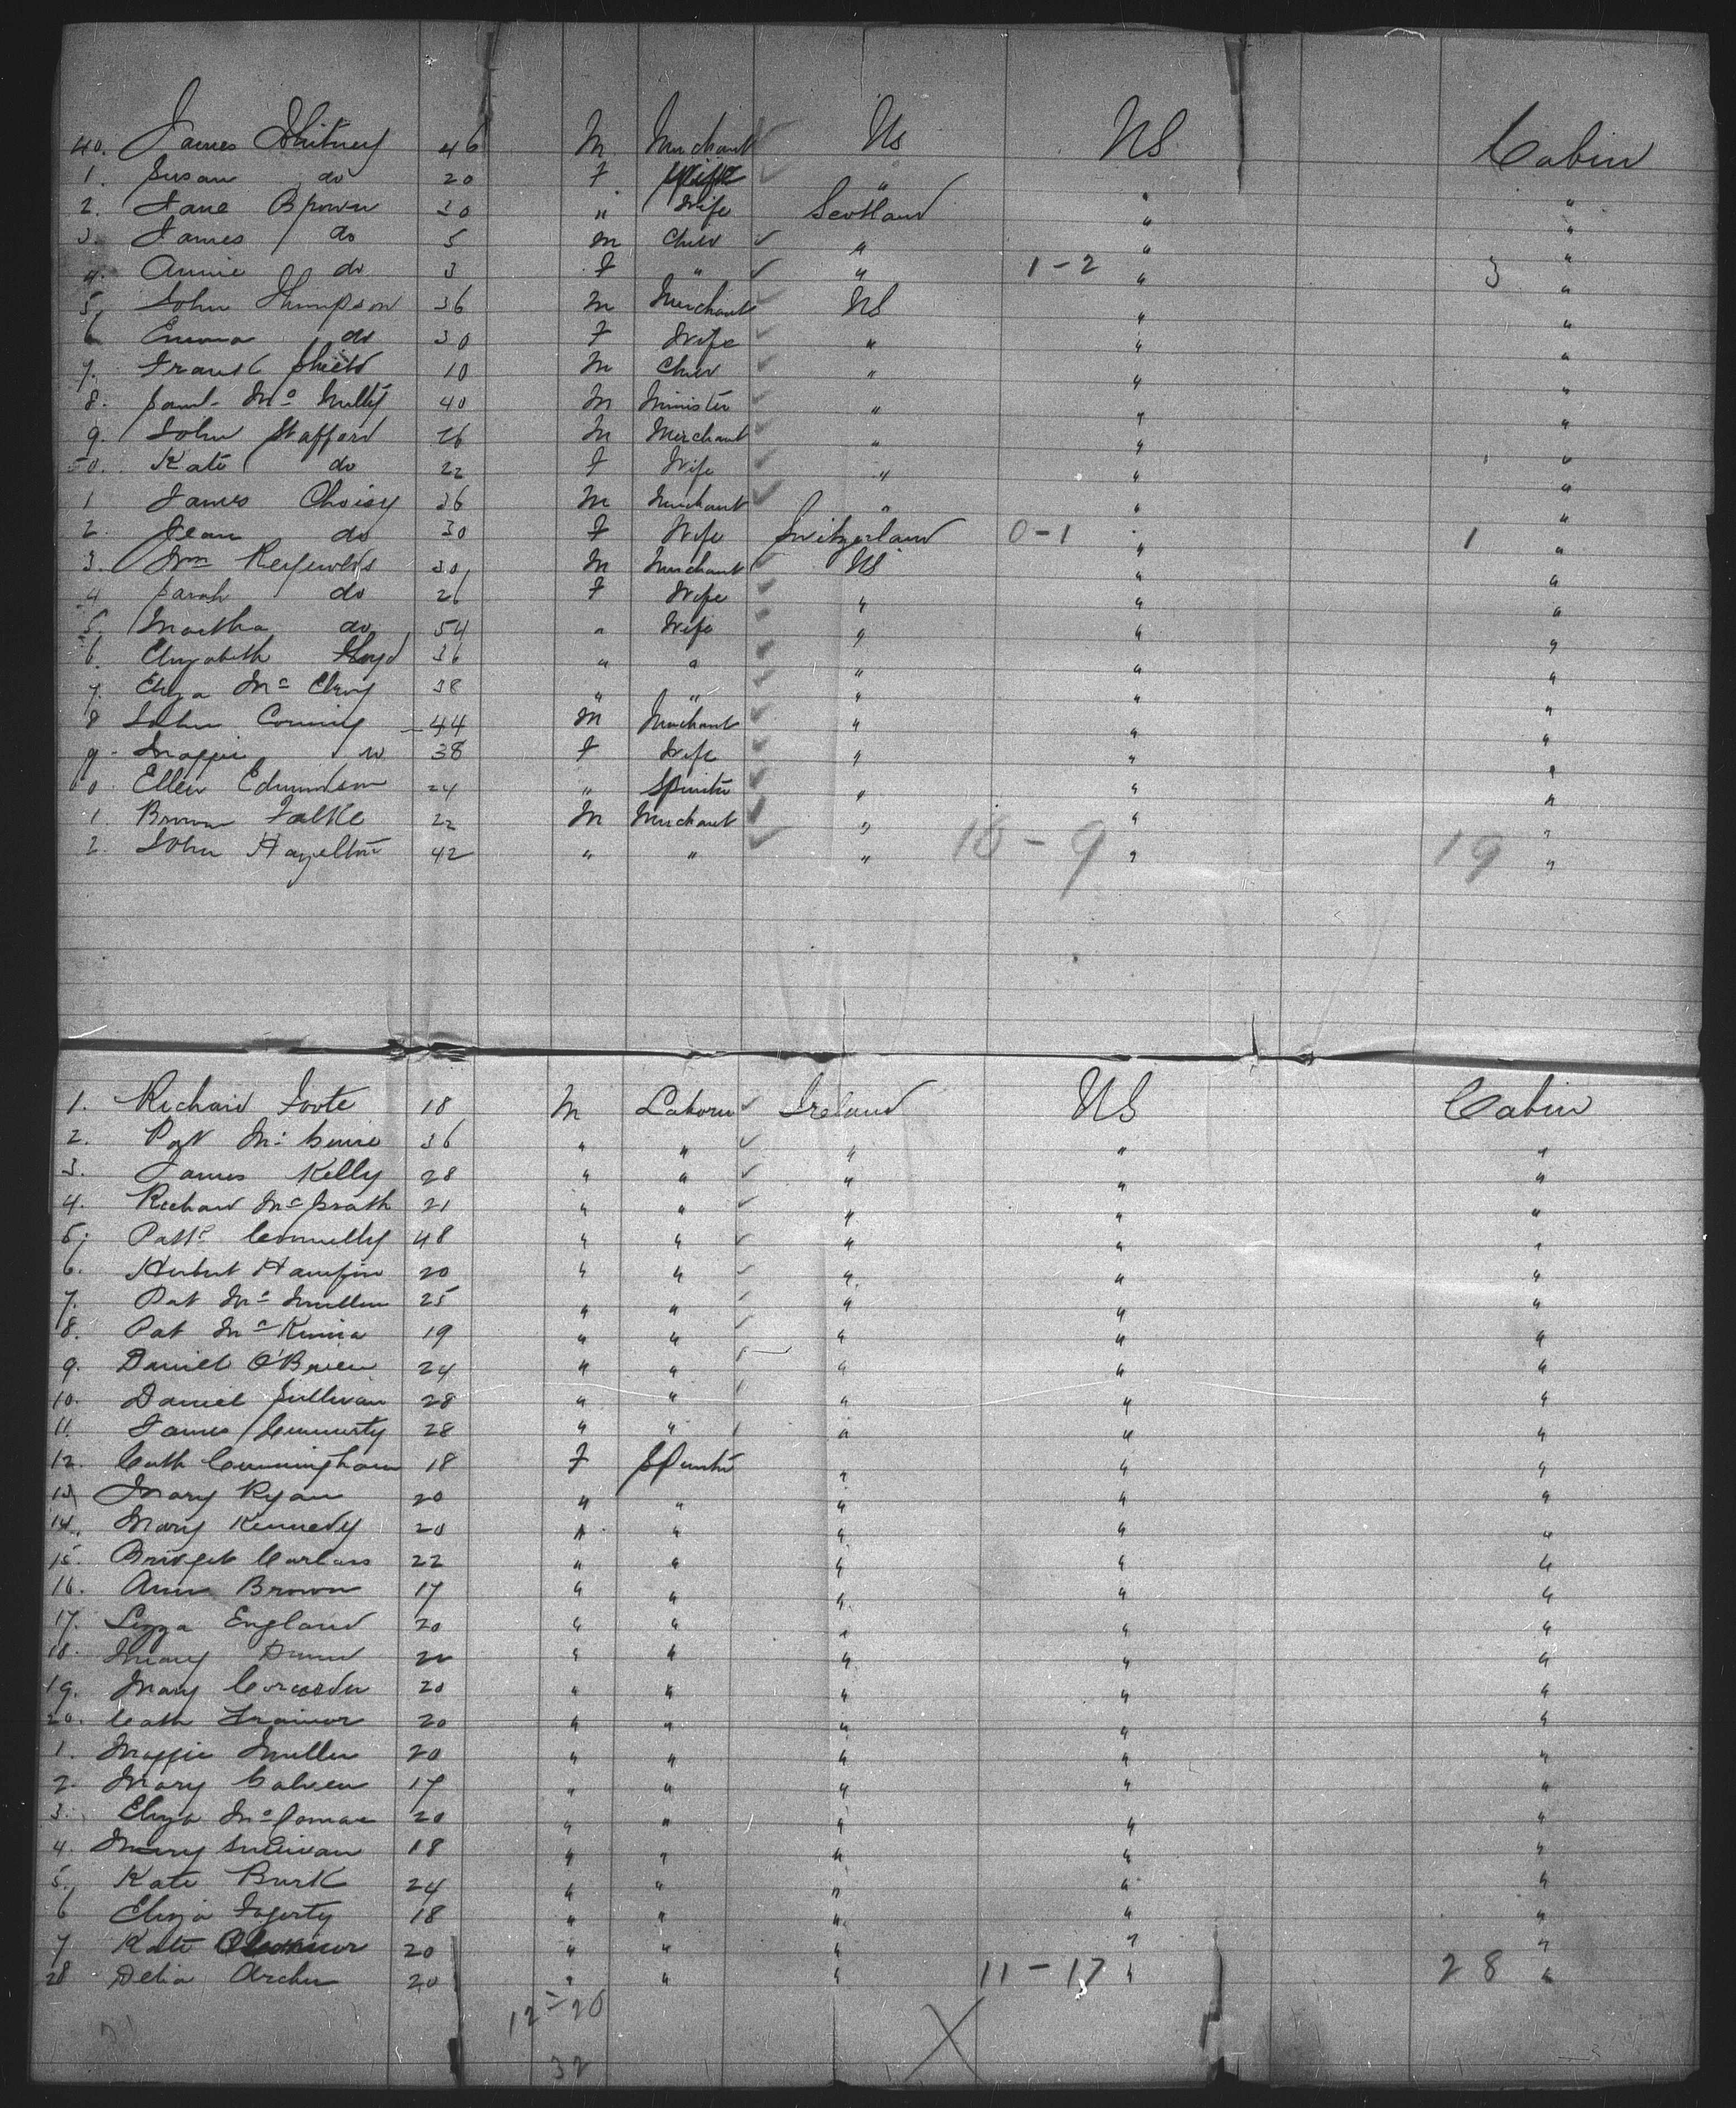 40. James Whitney 46 M Merchant US US Cabin
1. Susan do 20 F Wife " " "
2. Jane Brown 30 " Wife Scotland " "
3. James do 5 M Child " " "
4. Annie do 3 F " " 1-2 " 3 "
5. John Thompson 36 M Merchant US " "
6 Emma do 30 F Wife " " "
7. Frank Shield 10 M Child " " "
8. Saml. Mc Nulty 40 M Minister " " "
9. John Stafford 26 M Merchant " " "
50. Kate do 22 F Wife " " "
1 James Choisy 36 M Merchant " " "
2. Jean do 30 F Wife Switzerland 0-1 " 1 "
3. Wm Reynolds 30 M Merchant US " "
4 Sarah do 26 F Wife " " "
5. Martha do 54 " Wife " " "
6. Elizabeth Lloyd 36 " " " " "
7. Eliza Mc 38 " " " " "
8 John Corning 44 M Merchant " " "
9 - Maggie do 38 F Wife " " "
60. Ellen Edmundson 24 " Spinster " " "
1. Brown Falke 22 M Merchant " " "
2. John Hazelton 42 " " " 10-9 " 19 "
1. Richard Foote 18 M Laborer Ireland US Cabin
2. Pat Mc Guire 36 " " " " "
3. James Kelly 28 " " " " "
4. Richard McGrath 21 " " " " "
5. Patk Connelly 48 " " " " "
6. Herbert 20 " " " " "
7. Pat Mc Mullen 25 " " " " "
8. Pat McKenna 19 " " " " "
9. Daniel O'Brien 24 " " " " "
10. Daniel Sullivan 28 " " " " "
11. James 28 " " " " "
12. Cath Cunningham 18 F Spinster " " "
13 Mary Ryan 20 " " " " "
14. Mary Kennedy 20 " " " " "
15. Bridget 22 " " " " "
16. Ann Brown 17 " " " " "
17. Lizza England 20 " " " " "
18. Mary 20 " " " " "
19. Mary 20 " " " " "
20. Cath Trainor 20 " " " " "
1. Maggie Muller 20 " " " " "
2. Mary 17 " " " " "
3. Eliza Mc 20 " " " " "
4. Mary Sullivan 18 " " " " "
5. Kate Burk 24 " " " " "
6 Eliza Fogerty 18 " " " " "
7 Kate 20 " " " " "
28 Delia Archer 20 " " " 11-17 " 28 "
12-20
32